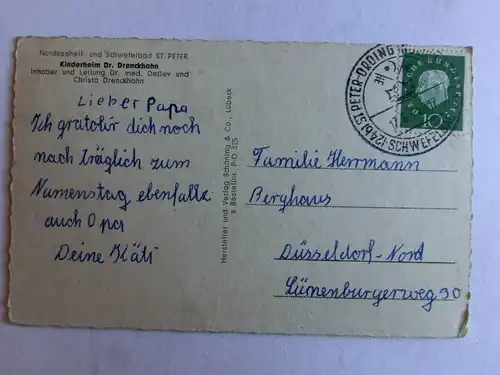 Nordseeheil- und Schwefelbad ST. PETER
Kinderheim Dr. Drenckhahn
Inhaber und Leitung Dr. med. Detlev und
Christa Drenckhahn
Lieber Papa
Ich gratolir dich noch
nach träglich zum
Namenstag ebenfalls
auch Opa
Deine Käti
Hersteller und Verlag Schöning & Co., Lübeck
Bestellnr. P-O 325
ST. PETER-ORDING
(24b)
SCHWEFEL
10
Familie Herrmann
Berghaus
Düsseldorf-Nord
Lünenburgerweg 30